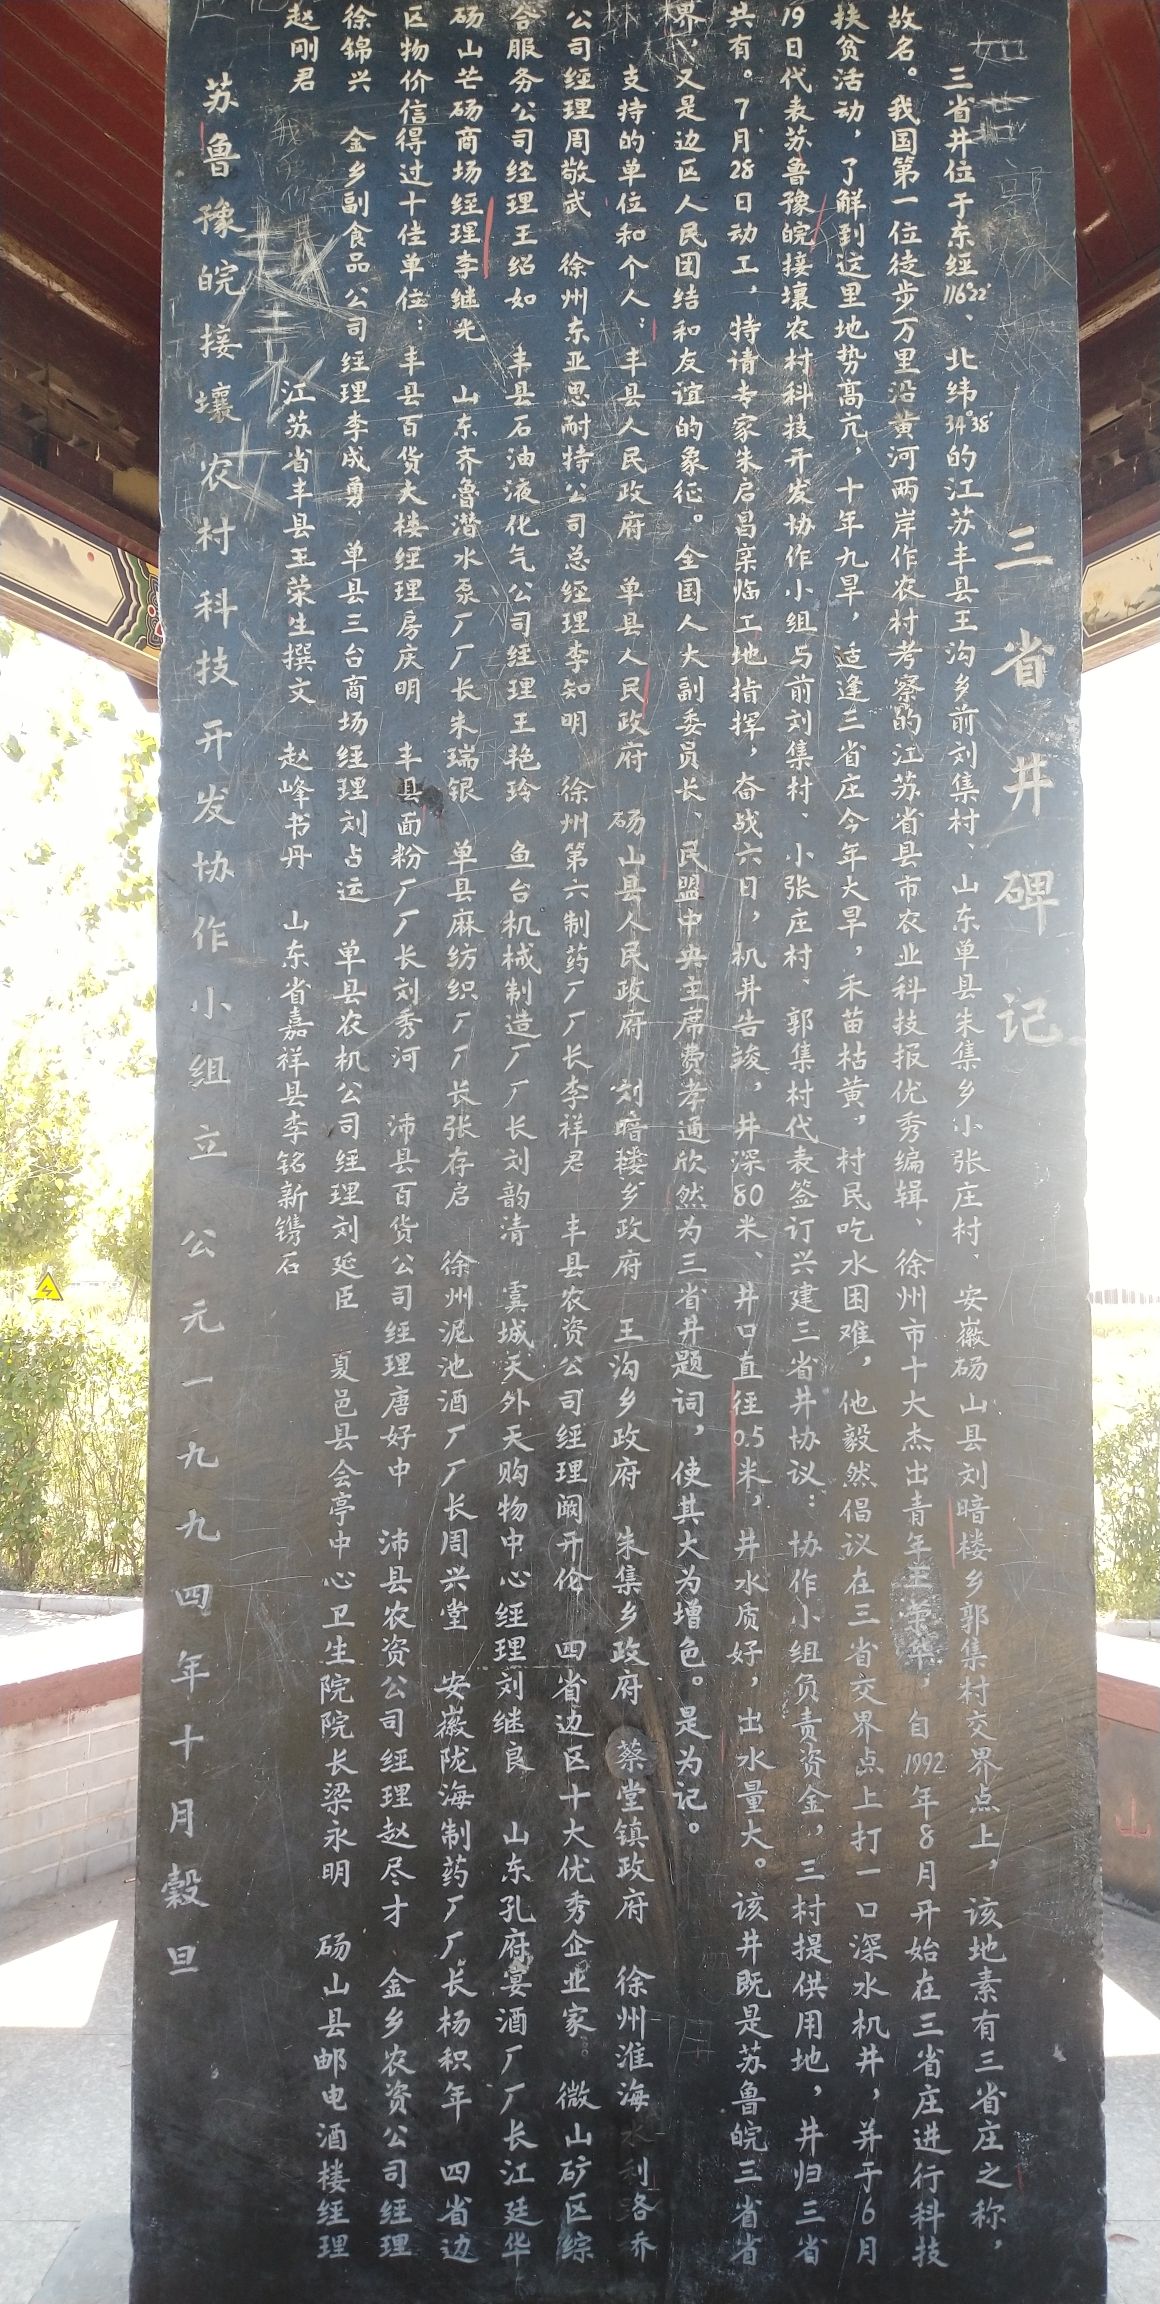 三省井碑记
三省井位于东经116°22′、北纬34°38′的江苏丰县王沟乡前刘集村、山东单县朱集乡小张庄村、安徽砀山县刘暗楼乡郭集村交界点上，该地素有三省庄之称，
故名。我国第一位徒步万里沿黄河两岸作农村考察的江苏省县市农业科技报优秀编辑、徐州市十大杰出青年王荣华，自1992年8月开始在三省庄进行科技
扶贫活动，了解到这里地势高亢，十年九旱，适逢三省庄今年大旱，禾苗枯黄，村民吃水困难，他毅然倡议在三省交界点上打一口深水机井，并于6月
19日代表苏鲁豫皖接壤农村科技开发协作小组与前刘集村、小张庄村、郭集村代表签订兴建三省井协议：协作小组负责资金，三村提供用地，井归三省
共有。7月28日动工，特请专家朱启昌亲临工地指挥，奋战六日，机井告竣，井深80米、井口直径0.5米，井水质好，出水量大。该井既是苏鲁皖三省省
界，又是边区人民团结和友谊的象征。全国人大副委员长、民盟中央主席费孝通欣然为三省井题词，使其大为增色。是为记。
支持的单位和个人：丰县人民政府 单县人民政府 砀山县人民政府 刘暗楼乡政府 王沟乡政府 朱集乡政府 蔡堂镇政府 徐州淮海水利洛乔
公司经理周敬武 徐州东亚思耐特公司总经理李知明 徐州第六制药厂厂长李祥君 丰县农资公司经理阚开伦 四省边区十大优秀企业家 微山矿区综
合服务公司经理王绍如 丰县石油液化气公司经理王艳玲 鱼台机械制造厂厂长刘韵清 虞城天外天购物中心经理刘继良 山东孔府宴酒厂厂长江廷华
砀山芒砀商场经理李继光 山东齐鲁潜水泵厂厂长朱瑞银 单县麻纺织厂厂长张存启 徐州泥池酒厂厂长周兴堂 安徽陇海制药厂厂长杨积年 四省边
区物价信得过十佳单位：丰县百货大楼经理房庆明 丰县面粉厂厂长刘秀河 沛县百货公司经理唐好中 沛县农资公司经理赵尽才 金乡农资公司经理
徐锦兴 金乡副食品公司经理李成勇 单县三台商场经理刘占运 单县农机公司经理刘延臣 夏邑县会亭中心卫生院院长梁永明 砀山县邮电酒楼经理
赵刚君
江苏省丰县王荣生撰文 赵峰书丹 山东省嘉祥县李铭新镌石
苏鲁豫皖接壤农村科技开发协作小组立 公元一九九四年十月穀旦